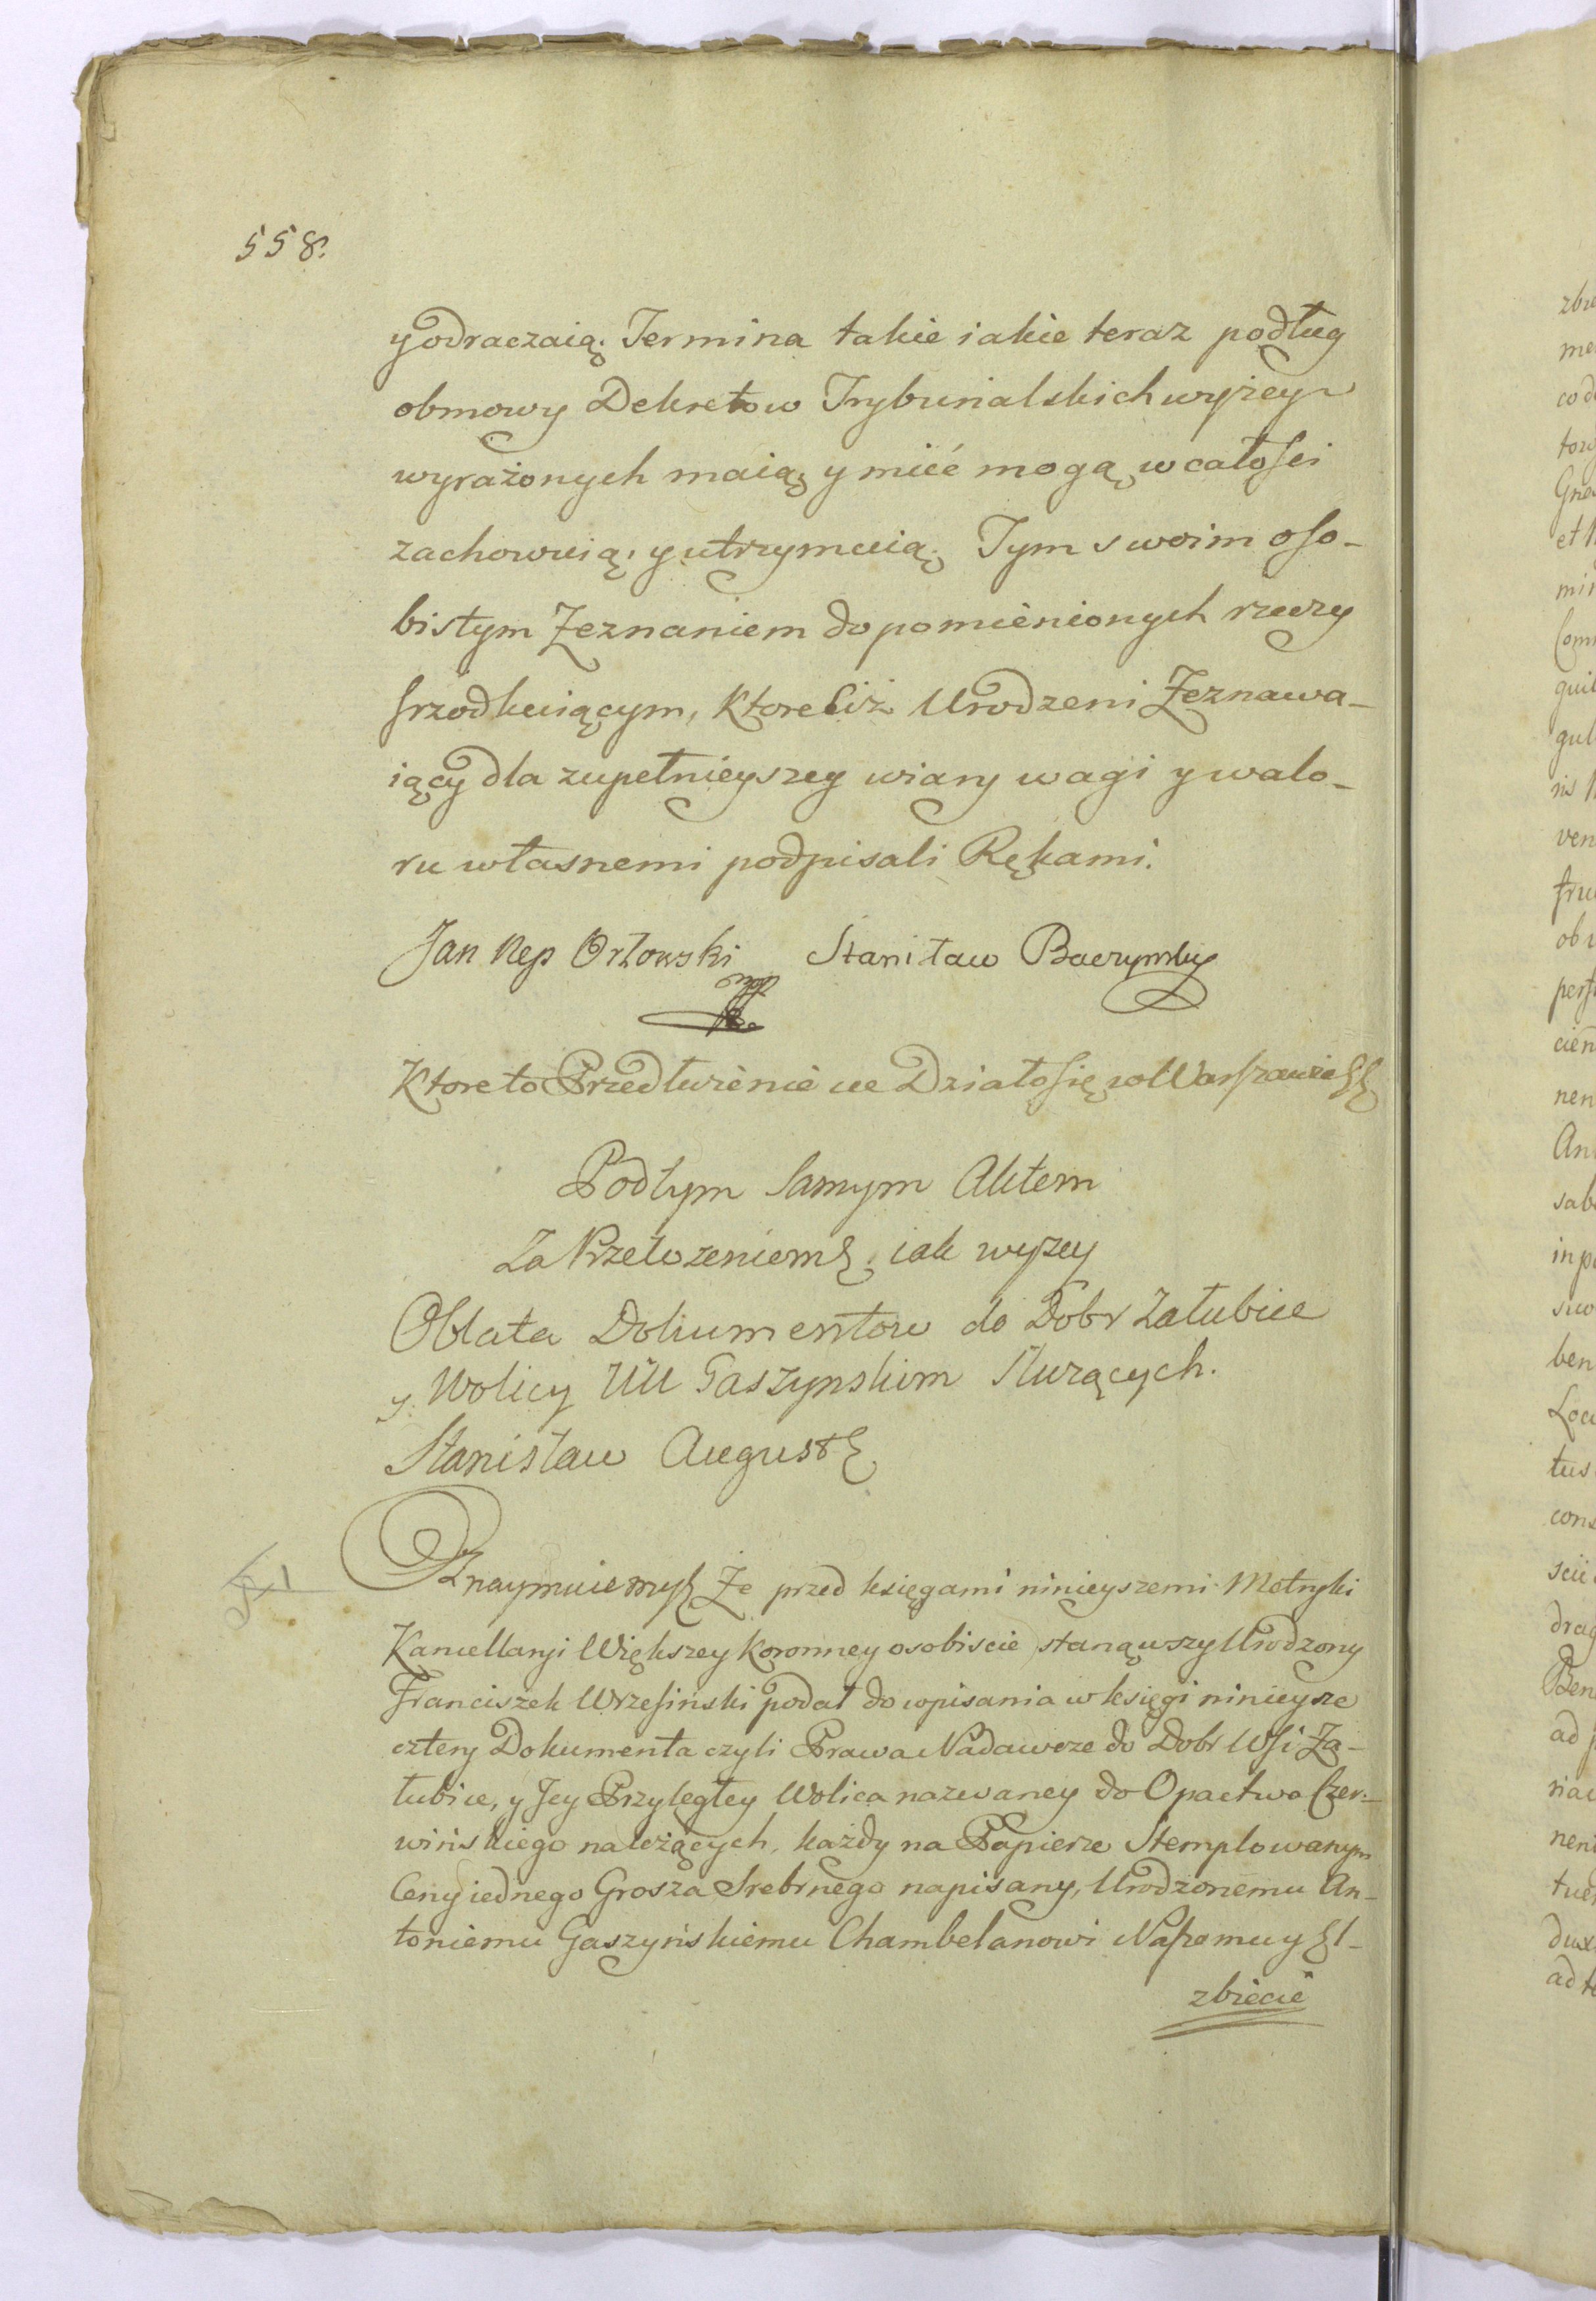 558.
y odraczaią. Termina takie iakie teraz podług
obmowy Dekretow Trybunalskich wyżey
wyrażonych maią, y mieć mogą, w całosci
zachowuią, y utrzymuią. Tym swoim oso-
bistym Zeznaniem do pomienionych rzeczy
srzodkuiącym, ktore ciż Urodzeni Zeznawa-
iący dla zupełnieyszey wiary wagi y walo-
ru własnemi podpisali Rękami.
Jan Nep Orłowski Stanisław Baczynsky
mp
Ktore to Przedłużenie &c Działo się w Warszawie &&
Pod tym samym Aktem
Za Przełożeniem & iak wyzey
Oblata Dokumentow do Dobr Załubice
y Wolicy UU Gaszynskim służących.
Stanisław August &
Oznaymuiemy & Że przed księgami ninieyszemi Metryki
Kancellaryi Większey Koronney osobiscie stanąwszy Urodzony
Franciszek Wrzesinski podał do wpisania w księgi ninieysze
cztery Dokumenta czyli Prawa Nadawcze do Dobr Wsi Za-
łubice, y Jey Przyległey Wolica nazwaney do Opactwa Czer-
wińskiego należących, każdy na Papierze Stemplowanym
Ceny iednego Grosza Srebrnego napisany, Urodzonemu An-
toniemu Gaszyńskiemu Chambelanowi Naszemu y El-
zbiecie